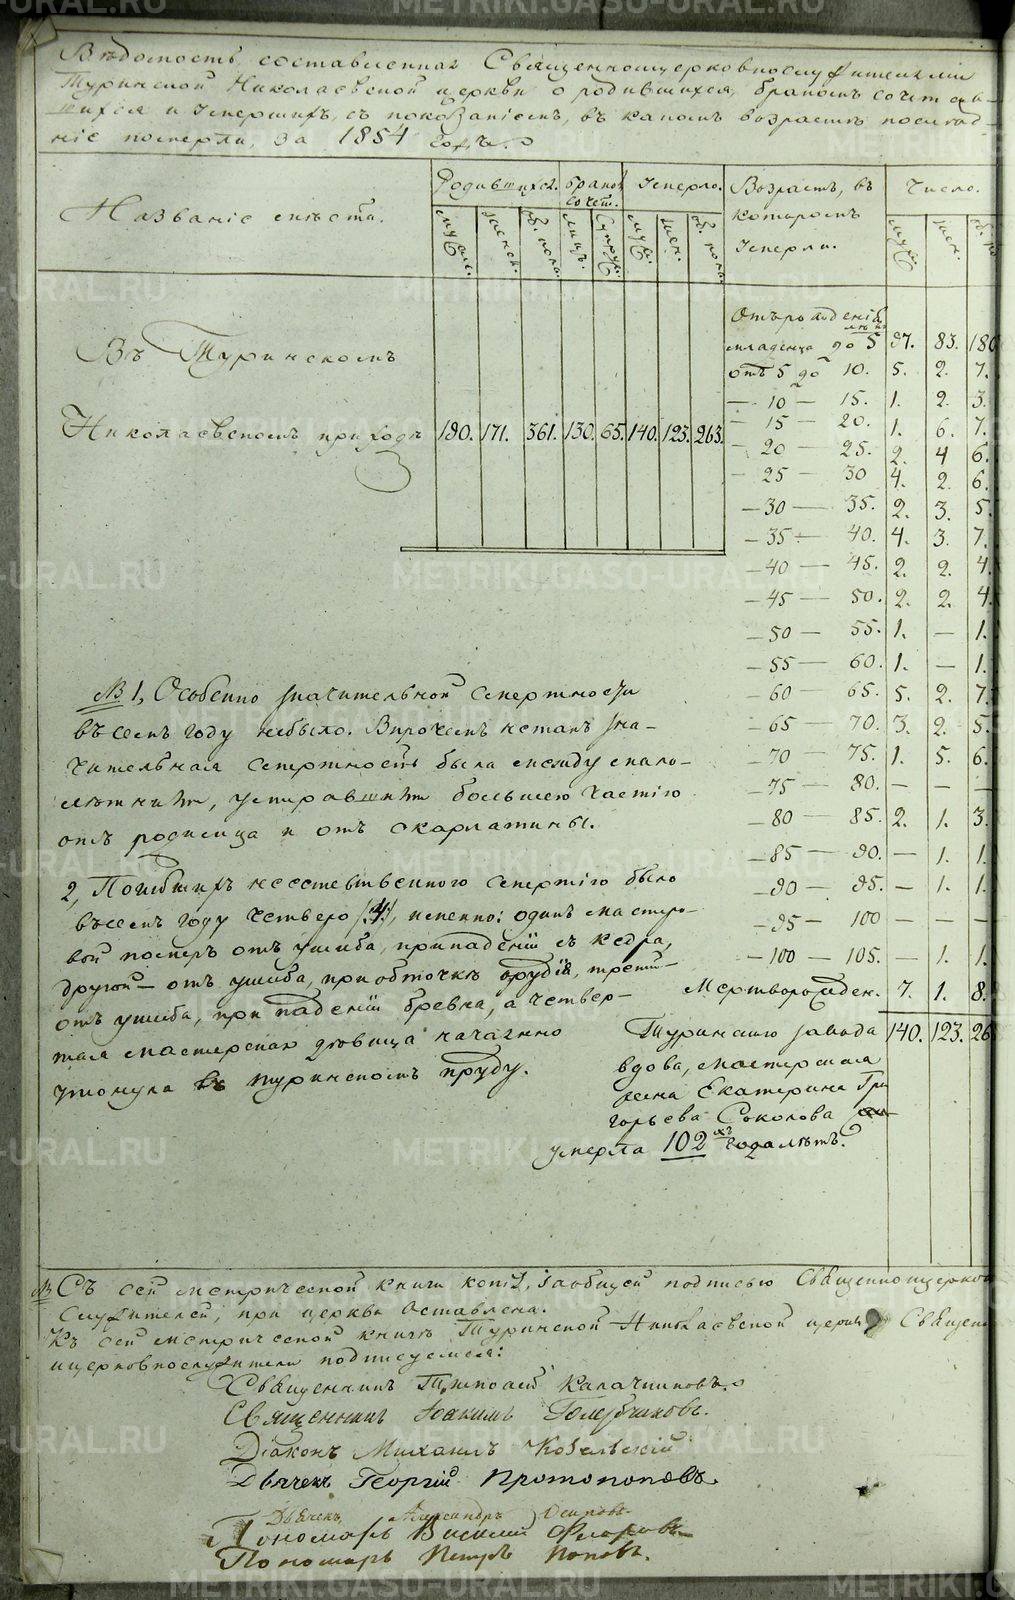 Вѣдомость, составленная Священноцерковнослужителями
Туринской Николаевской церкви о родившихся, бракомъ сочетав-
шихся и умершихъ, съ показаніемъ, въ какомъ возрастѣ послѣд-
ніе померли, за 1854 годъ.
Названіе мѣста.
Родившихся.
браков. сочет.
Умерло.
Возрастъ, въ
которомъ
умерли.
Число.
муж.
женск.
об. пола.
лицъ.
супруж.
муж.
жен.
об. пола.
муж.
жен.
Въ Туринскомъ
Николаевскомъ приходѣ
190. 171. 361. 130. 65. 140. 123. 263.
Отъ рожденія
младенца до 5 97. 83. 180
отъ 5 до 10. 5. 2. 7.
— 10 — 15. 1. 2. 3.
— 15 — 20. 1. 6. 7.
— 20 — 25. 2. 4 6.
— 25 — 30 4. 2. 6.
— 30 — 35. 2. 3. 5.
— 35 — 40. 4. 3. 7.
— 40 — 45. 2. 2. 4.
— 45 — 50. 2. 2. 4.
— 50 — 55. 1. — 1.
— 55 — 60. 1. — 1.
— 60 — 65. 5. 2. 7.
— 65 — 70. 3. 2. 5.
— 70 — 75. 1. 5. 6.
— 75 — 80. — — —
— 80 — 85. 2. 1. 3.
— 85 — 90. — 1. 1.
— 90 — 95. — 1. 1.
— 95 — 100 — — —
— 100 — 105. — 1. 1.
Мертворожден. 7. 1. 8.
140. 123. 26
NB 1, Особенно значительной смертности
въ семъ году небыло. Впрочемъ нетакъ зна-
чительная смертность была между мало-
лѣтними, умиравшими большею частію
отъ родимца и отъ скарлатины.
2, Погибшихъ неестественною смертію было
въ семъ году четверо /:4:/, именно: одинъ мастеро-
вой померъ отъ ушиба, при паденіи съ кедра,
другой — отъ ушиба, при обточкѣ орудія, третій —
отъ ушиба, при паденіи бревна, а четвер-
тая мастерская дѣвица нечаянно
утонула въ Туринскомъ пруду.
Туринскаго завода
вдова, мастерская
жена Екатерина Гри
горьева Соколова
умерла 102хъ года лѣтъ.
NB Съ сей метрической книги копія, за общей подписью Священноцерков
служителей, при церкви оставлена.
Къ сей метрической книгѣ Туринской Николаевской церкви Священно
церковнослужители подписуемся:
Священникъ Тимоѳей Калачниковъ.
Священникъ Іоакимъ Голубчиковъ.
Діаконъ Михаилъ Козельскій
Дьячекъ Георгій Протопоповъ.
Дьячекъ Александръ Осиповъ
Пономарь Василий Флоровъ
Пономарь Петръ Поповъ.
METRIKI.GASO-URAL.RU